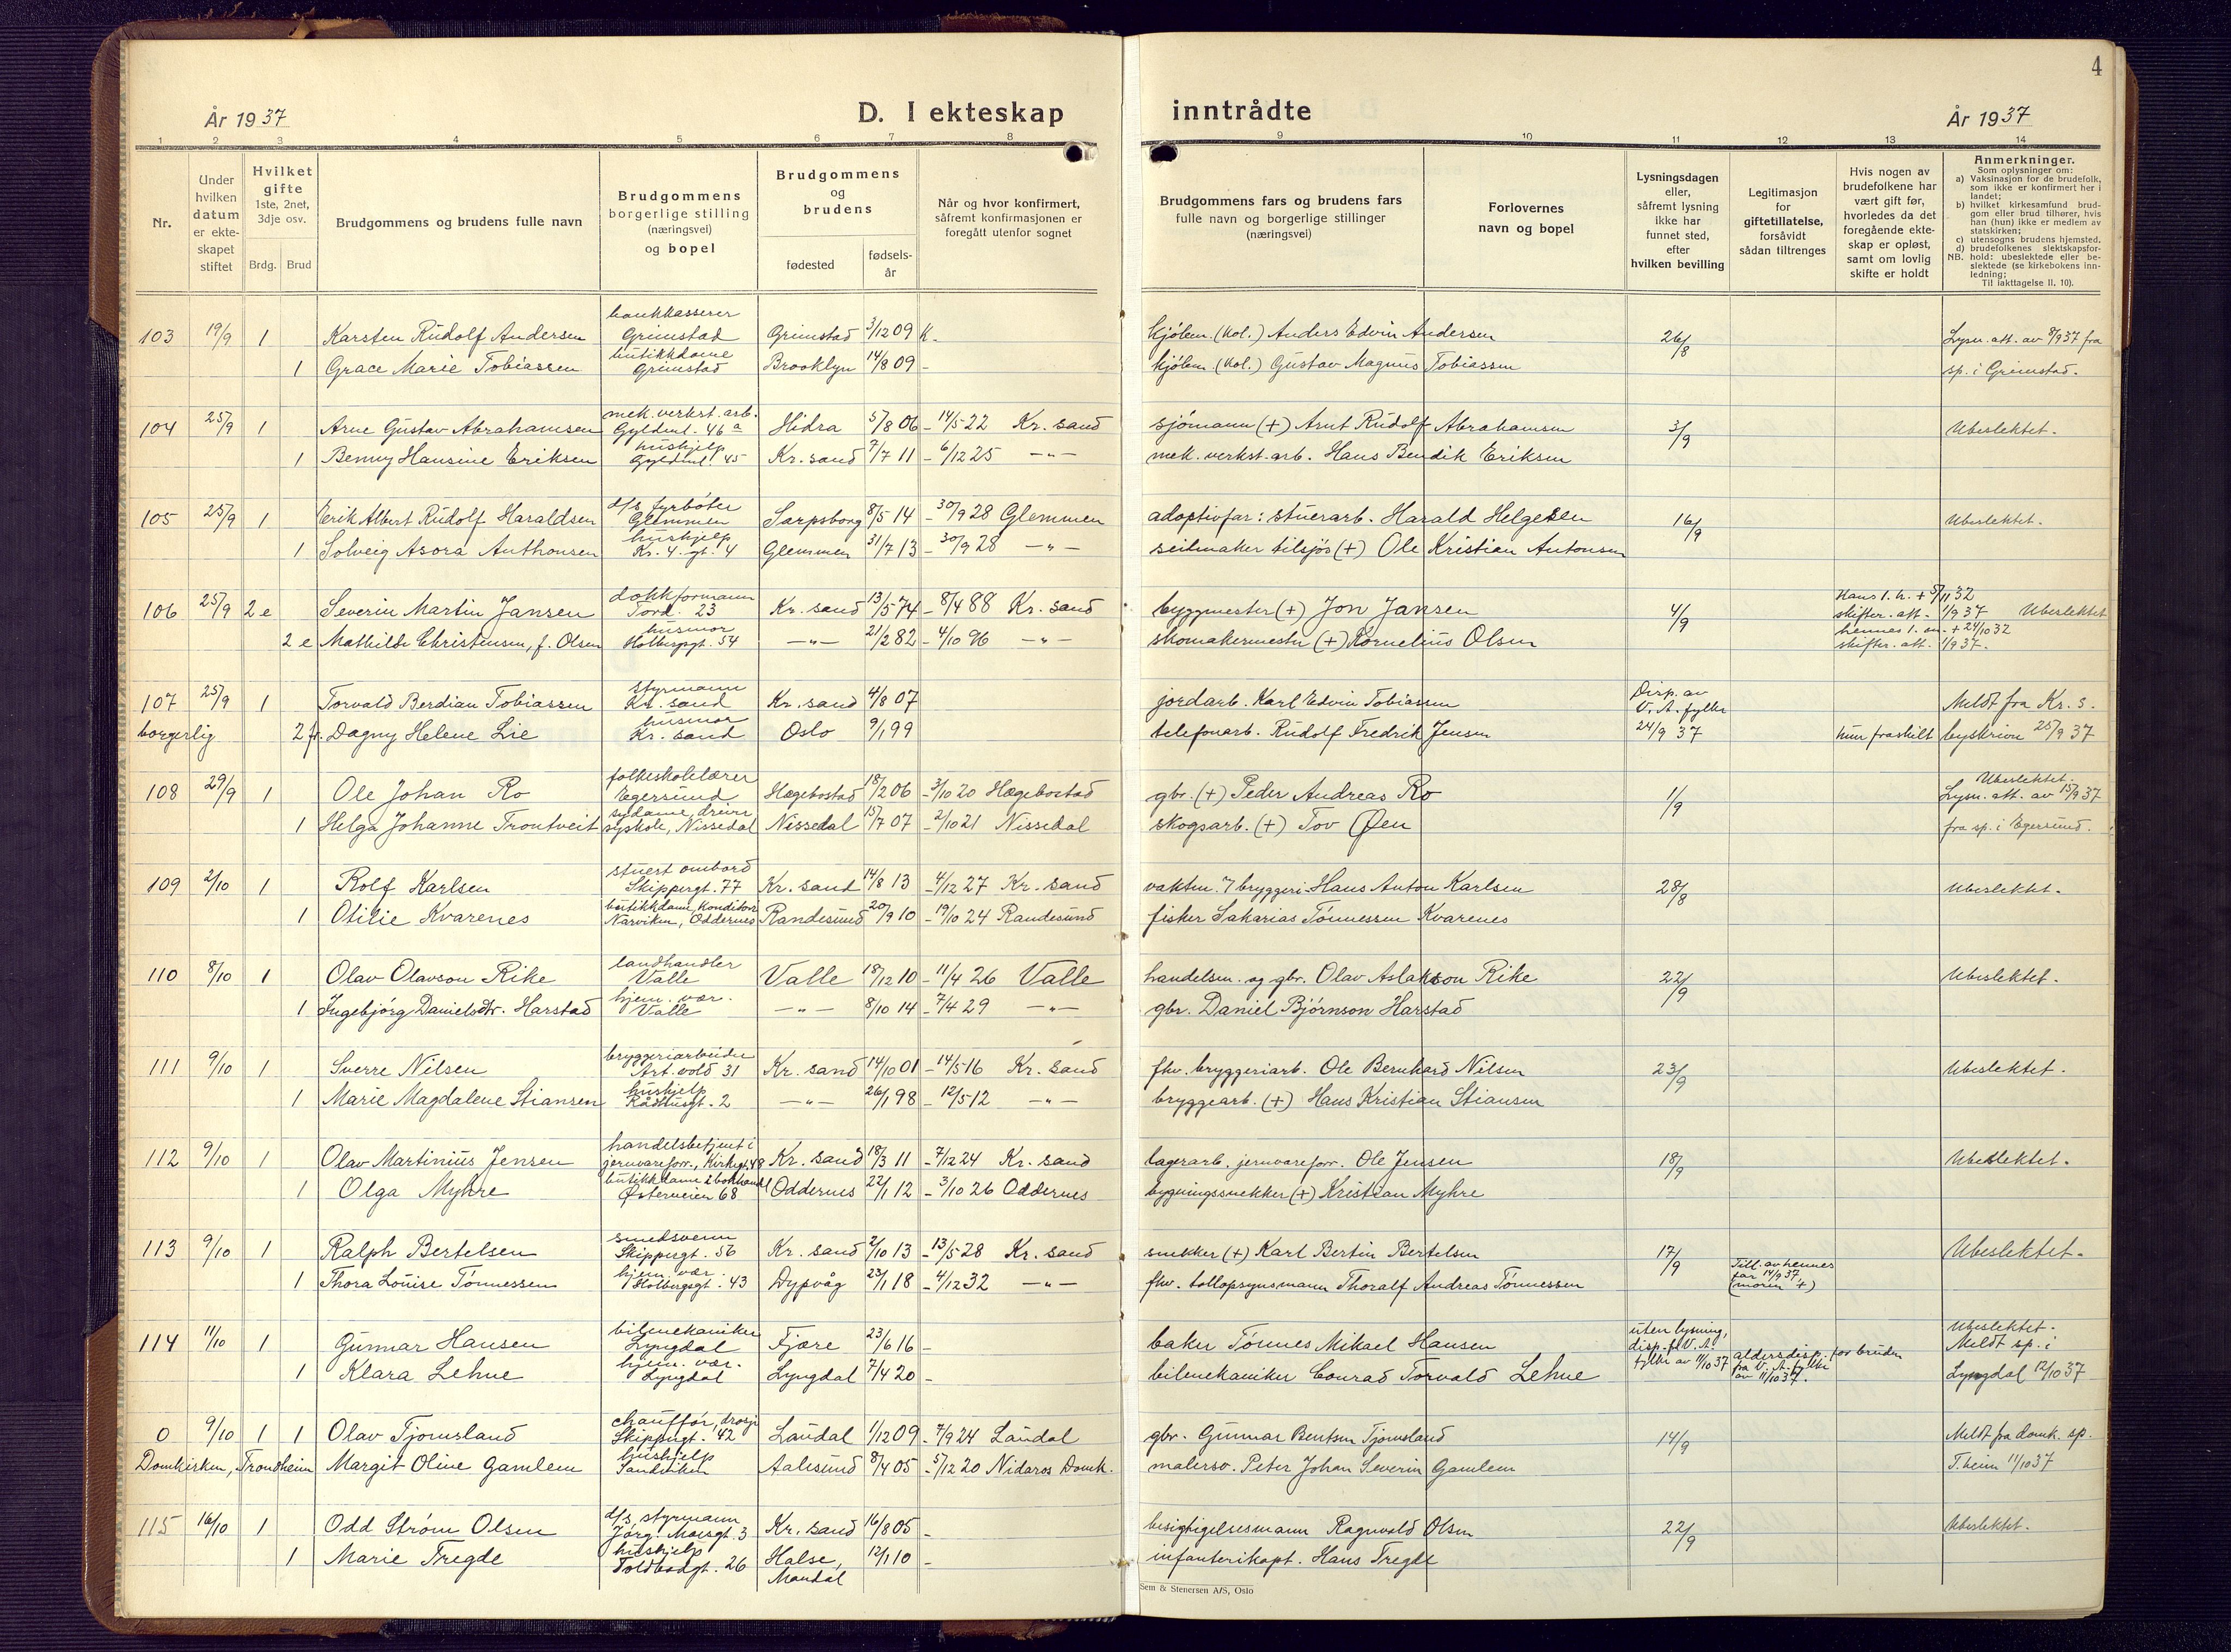 4
År 1937
D. I ekteskap
inntrådte
År 1937
1 2 3 4 5 6 7 8
9 10 11 12 13 14
Nr.
Under hvilken datum er ekteskapet stiftet
Hvilket gifte 1ste, 2net, 3dje osv.
Brdg. Brud
Brudgommens og brudens fulle navn
Brudgommens borgerlige stilling (næringsvei) og bopel
Brudgommens og brudens
fødested
fødsels-år
Når og hvor konfirmert, såfremt konfirmasjonen er foregått utenfor sognet
Brudgommens fars og brudens fars fulle navn og borgerlige stillinger (næringsvei)
Forlovernes navn og bopel
Lysningsdagen eller, såfremt lysning ikke har funnet sted, efter hvilken bevilling
Legitimasjon for giftetillatelse, forsåvidt sådan tiltrenges
Hvis nogen av brudefolkene har vært gift før, hvorledes da det foregående ekteskap er opløst, samt om lovlig skifte er holdt
Anmerkninger.
Som oplysninger om:
a) Vaksinasjon for de brudefolk, som ikke er konfirmert her i landet;
b) hvilket kirkesamfund brudgom eller brud tilhører, hvis han (hun) ikke er medlem av statskirken;
c) utensogns brudens hjemsted.
d) brudefolkenes slektskapsforhold: ubeslektede eller beslektede (se kirkebokens innledning;
NB.
Til iakttagelse II. 10).
bankkasserer
103 19/9 1 Karsten Rudolf Andersen Grimstad Grimstad 3/12 09 K. kjølem. (kol.) Anders Edvin Andersen 26/8 Lysn. att. av 8/9 37 fra
butikkdame
1 Grace Marie Tobiassen Grimstad Brooklyn 14/8 09 - kjølem. (kol.) Gustav Magnus Tobiassen sp. i Grimstad.
mek. verkst. arb.
104 25/9 1 Arne Gustav Abrahamsen Gyldenl. 46 a Hidra 5/8 06 - 14/5 22 Kr. sand sjømann (+) Arnt Rudolf Abrahamsen 3/9 Ubeslektet.
hushjelp
1 Benny Hansine Eriksen Gyldenl. 45 Kr. sand 7/7 11 - 6/12 25 -"- mek. verkst. arb. Hans Bendik Eriksen
d/s fyrbøter
105 25/9 1 Erik Albert Rudolf Haraldsen Glemmen Sarpsborg 8/5 14 - 30/9 28 Glemmen adoptivfar: stuerarb. Harald Helgesen 16/9 Ubeslektet.
hushjelp
1 Solveig Asora Anthonsen Kr. 4. gt. 4 Glemmen 31/7 13 - 30/9 28 -"- seilmaker tilsjøs (+) Ole Kristian Antonsen
dokkformann
106 25/9 2 e Severin Martin Jansen Tord. 23 Kr. sand 13/5 74 - 8/4 88 Kr. sand byggmester (+) Jon Jansen 4/9 Hans 1. h. + 5/11 32 skifter. att. 1/9 37 Ubeslektet
husmor
2 e Mathilde Christensen, f. Olsen Holbergsgt. 54 -"- 21/2 82 - 4/10 96 -"- skomakermester (+) Kornelius Olsen hennes 1. m. + 24/10 32 skifter. att. 1/9 37.
styrmann
107 25/9 1 Torvald Berdian Tobiassen Kr. sand Kr. sand 4/8 07 jordarb. Karl Edvin Tobiassen Disp. av V. A. fylke Meldt fra Kr. s.
husmor
borgerlig 2 fr. Dagny Helene Lie Kr. sand Oslo 9/1 99 telefonarb. Rudolf Fredrik Jensen 24/9 37 hun fraskilt byskriver 25/9 37
folkeskolelærer
108 29/9 1 Ole Johan Ro Egersund Hægebostad 18/2 06 - 3/10 20 Hægebostad gbr. (+) Peder Andreas Ro 1/9 Ubeslektet. Lysn. att. av 15/9 37
sydame, driver
1 Helga Johanne Trontveit syskole, Nissedal Nissedal 15/7 07 - 2/10 21 Nissedal skogsarb. (+) Tov Øen fra sp. i Egersund.
stuert ombord
109 2/10 1 Rolf Karlsen Skippergt. 77 Kr. sand 14/8 13 - 4/12 27 Kr. sand vaktm. i bryggeri Hans Anton Karlsen 28/8 Ubeslektet.
butikkdame, konditori
1 Otilie Kvarenes Narviken, Oddernes Randesund 20/9 10 - 19/10 24 Randesund fisker Sakarias Tønnessen Kvarenes
landhandler
110 8/10 1 Olav Olavson Rike Valle Valle 18/12 10 - 11/4 26 Valle handelsm. og gbr. Olav Aslakson Rike 22/9 Ubeslektet.
hjem. vær.
1 Ingebjørg Danielsdtr. Harstad Valle -"- 8/10 14 - 7/4 29 -"- gbr. Daniel Bjørnson Harstad
bryggeriarbeider
111 9/10 1 Sverre Nilsen Art. vold 31 Kr. sand 14/10 01 - 14/5 16 Kr. sand fhv. bryggeriarb. Ole Bernhard Nilsen 23/9 Ubeslektet.
hushjelp
1 Marie Magdalene Stiansen Rådhusgt. 2 -"- 26/1 98 - 12/5 12 -"- bryggearb. (+) Hans Kristian Stiansen
handelsbetjent i
112 9/10 1 Olav Martinius Jensen jernvareforr., Kirkegt. 48 Kr. sand 18/3 11 - 7/12 24 Kr. sand lagerarb. jernvareforr. Ole Jensen 18/9 Ubeslektet.
butikkdame i bokhandel
1 Olga Myhre Østerveien 68 Oddernes 22/1 12 - 3/10 26 Oddernes bygningssnekker (+) Kristian Myhre
smedsvenn
113 9/10 1 Ralph Bertelsen Skippergt. 56 Kr. sand 2/10 13 - 13/5 28 Kr. sand snekker (+) Karl Bertin Bertelsen 17/9 Ubeslektet.
hjem. vær.
1 Thora Louise Tønnessen Holbergsgt. 43 Dypvåg 23/1 18 - 4/12 32 -"- fhv. tollopsynsmann Thoralf Andreas Tønnessen Till. av hennes far 14/9 37 (moren +)
bilmekaniker
114 11/10 1 Gunnar Hansen Lyngdal Fjære 23/6 16 - baker Tønnes Mikael Hansen uten lysning, disp. fl. V. A. fylke av 11/10 37 Ubeslektet. Meldt sp. i
hjem. vær.
1 Klara Lehne Lyngdal Lyngdal 7/4 20 - bilmekaniker Conrad Torvald Lehne aldersdisp. for bruden fra V. A. fylke av 11/10 37. Lyngdal 12/10 37
chauffør, drosje
0 9/10 1 1 Olav Tjomsland Skippergt. 42 Laudal 1/12 09 - 7/9 24 Laudal gbr. Gunnar Bentsen Tjomsland 14/9 Meldt fra domk. sp.
hushjelp
Domkirken, Trondheim Margit Oline Gamlem Sandviken Aalesund 8/4 05 - 5/12 20 Nidaros Domk. malersv. Peter Johan Severin Gamlem T.heim 11/10 37
d/s styrmann
115 16/10 1 Odd Strøm Olsen Jørg. Moesgt. 3 Kr. sand 16/8 05 - besigtigelsesmann Ragnvald Olsen 22/9 Ubeslektet.
hushjelp
1 Marie Tregde Toldbodgt. 26 Halse, Mandal 12/1 10 - infanterikapt. Hans Tregde
Sem & Stenersen A/S, Oslo